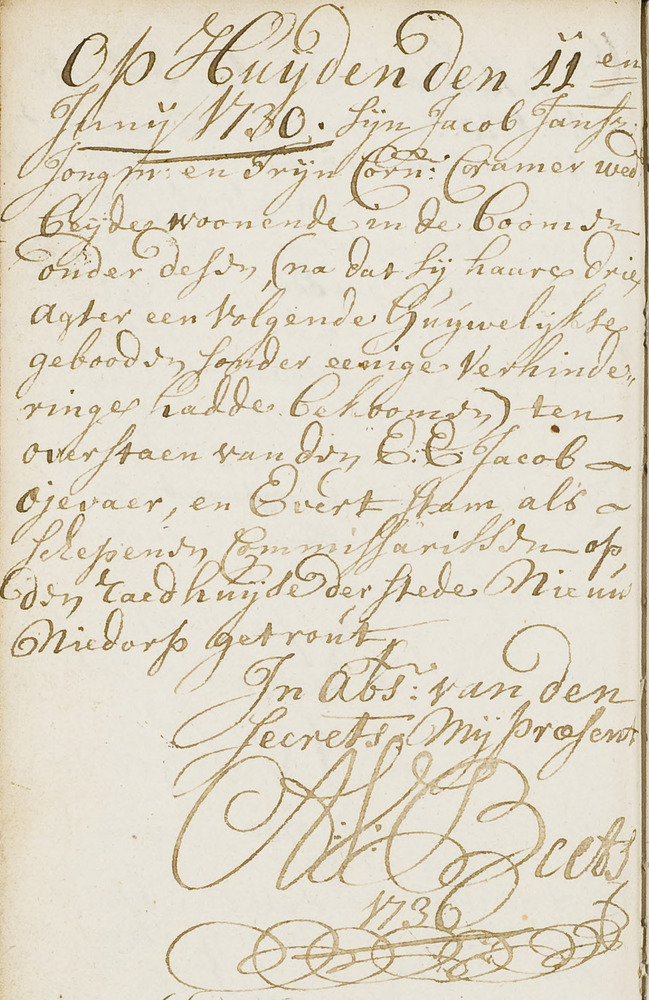 Op Huijden den 11en
Junij 1730. sijn Jacob Jansz:
Jongm: en Trijn Corn: Cramer wed
beijde woonende in de boomen
onder desen, (na dat sij haare drie
agter een volgende Huijwelijkse
gebooden sonder eenige Verhinde„
ringe hadde bekoomen) ten
overstaen van den E: E Jacob
Ojevaer, en Evert Stam als
schepenen Commissarissen op
den raedhuijse der stede Nieuw
Niedorp getrout,
In Abs: van den
Secrets. Mij præsent
A: S: Beets
1730